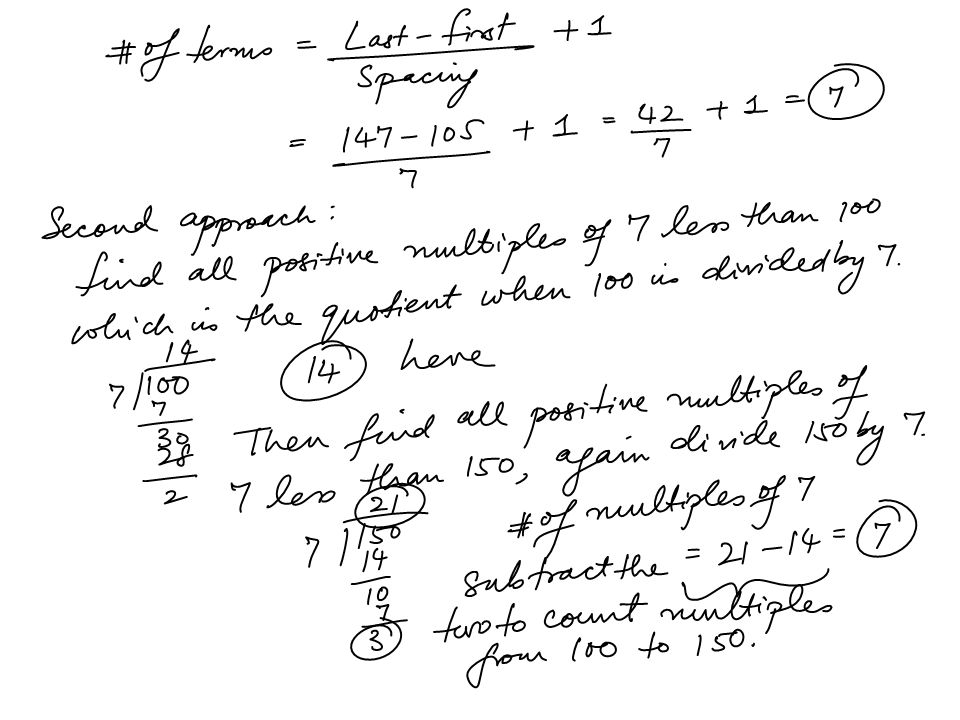 # of terms = Last - first / Spacing + 1
= 147 - 105 / 7 + 1 = 42 / 7 + 1 = 7
Second approach:
find all positive multiples of 7 less than 100
which is the quotient when 100 is divided by 7.
14
7 100
7
30
28
2
14 here
Then find all positive multiples of
7 less than 150, again divide 150 by 7.
21
7 150
14
10
7
3
# of multiples of 7
subtract the = 21 - 14 = 7
two to count multiples
from 100 to 150.